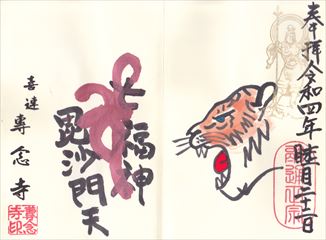 奉拝 令和四年 睦月二十二日
七福神
毘沙門天
喜連
専念寺
専念
寺印